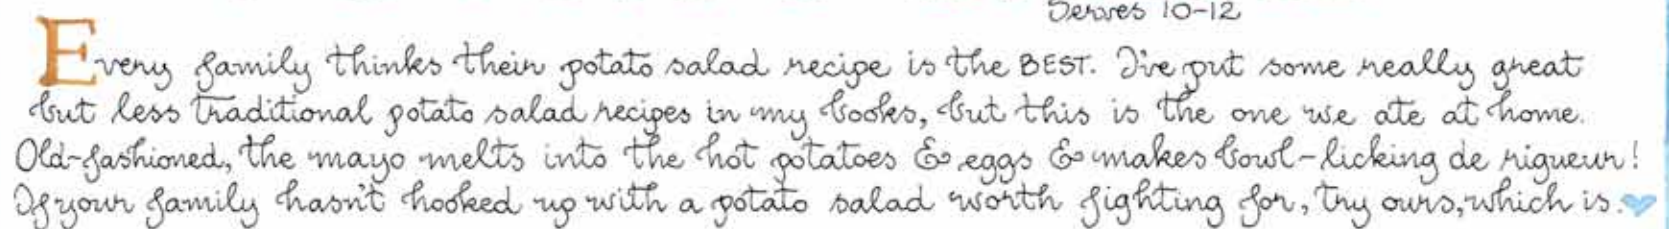 Serves 10-12
Every family thinks their potato salad recipe is the BEST. I've put some really great
but less traditional potato salad recipes in my books, but this is the one we ate at home.
Old-fashioned, the mayo melts into the hot potatoes & eggs & makes bowl-licking de rigueur!
If your family hasn't hooked up with a potato salad worth fighting for, try ours, which is.